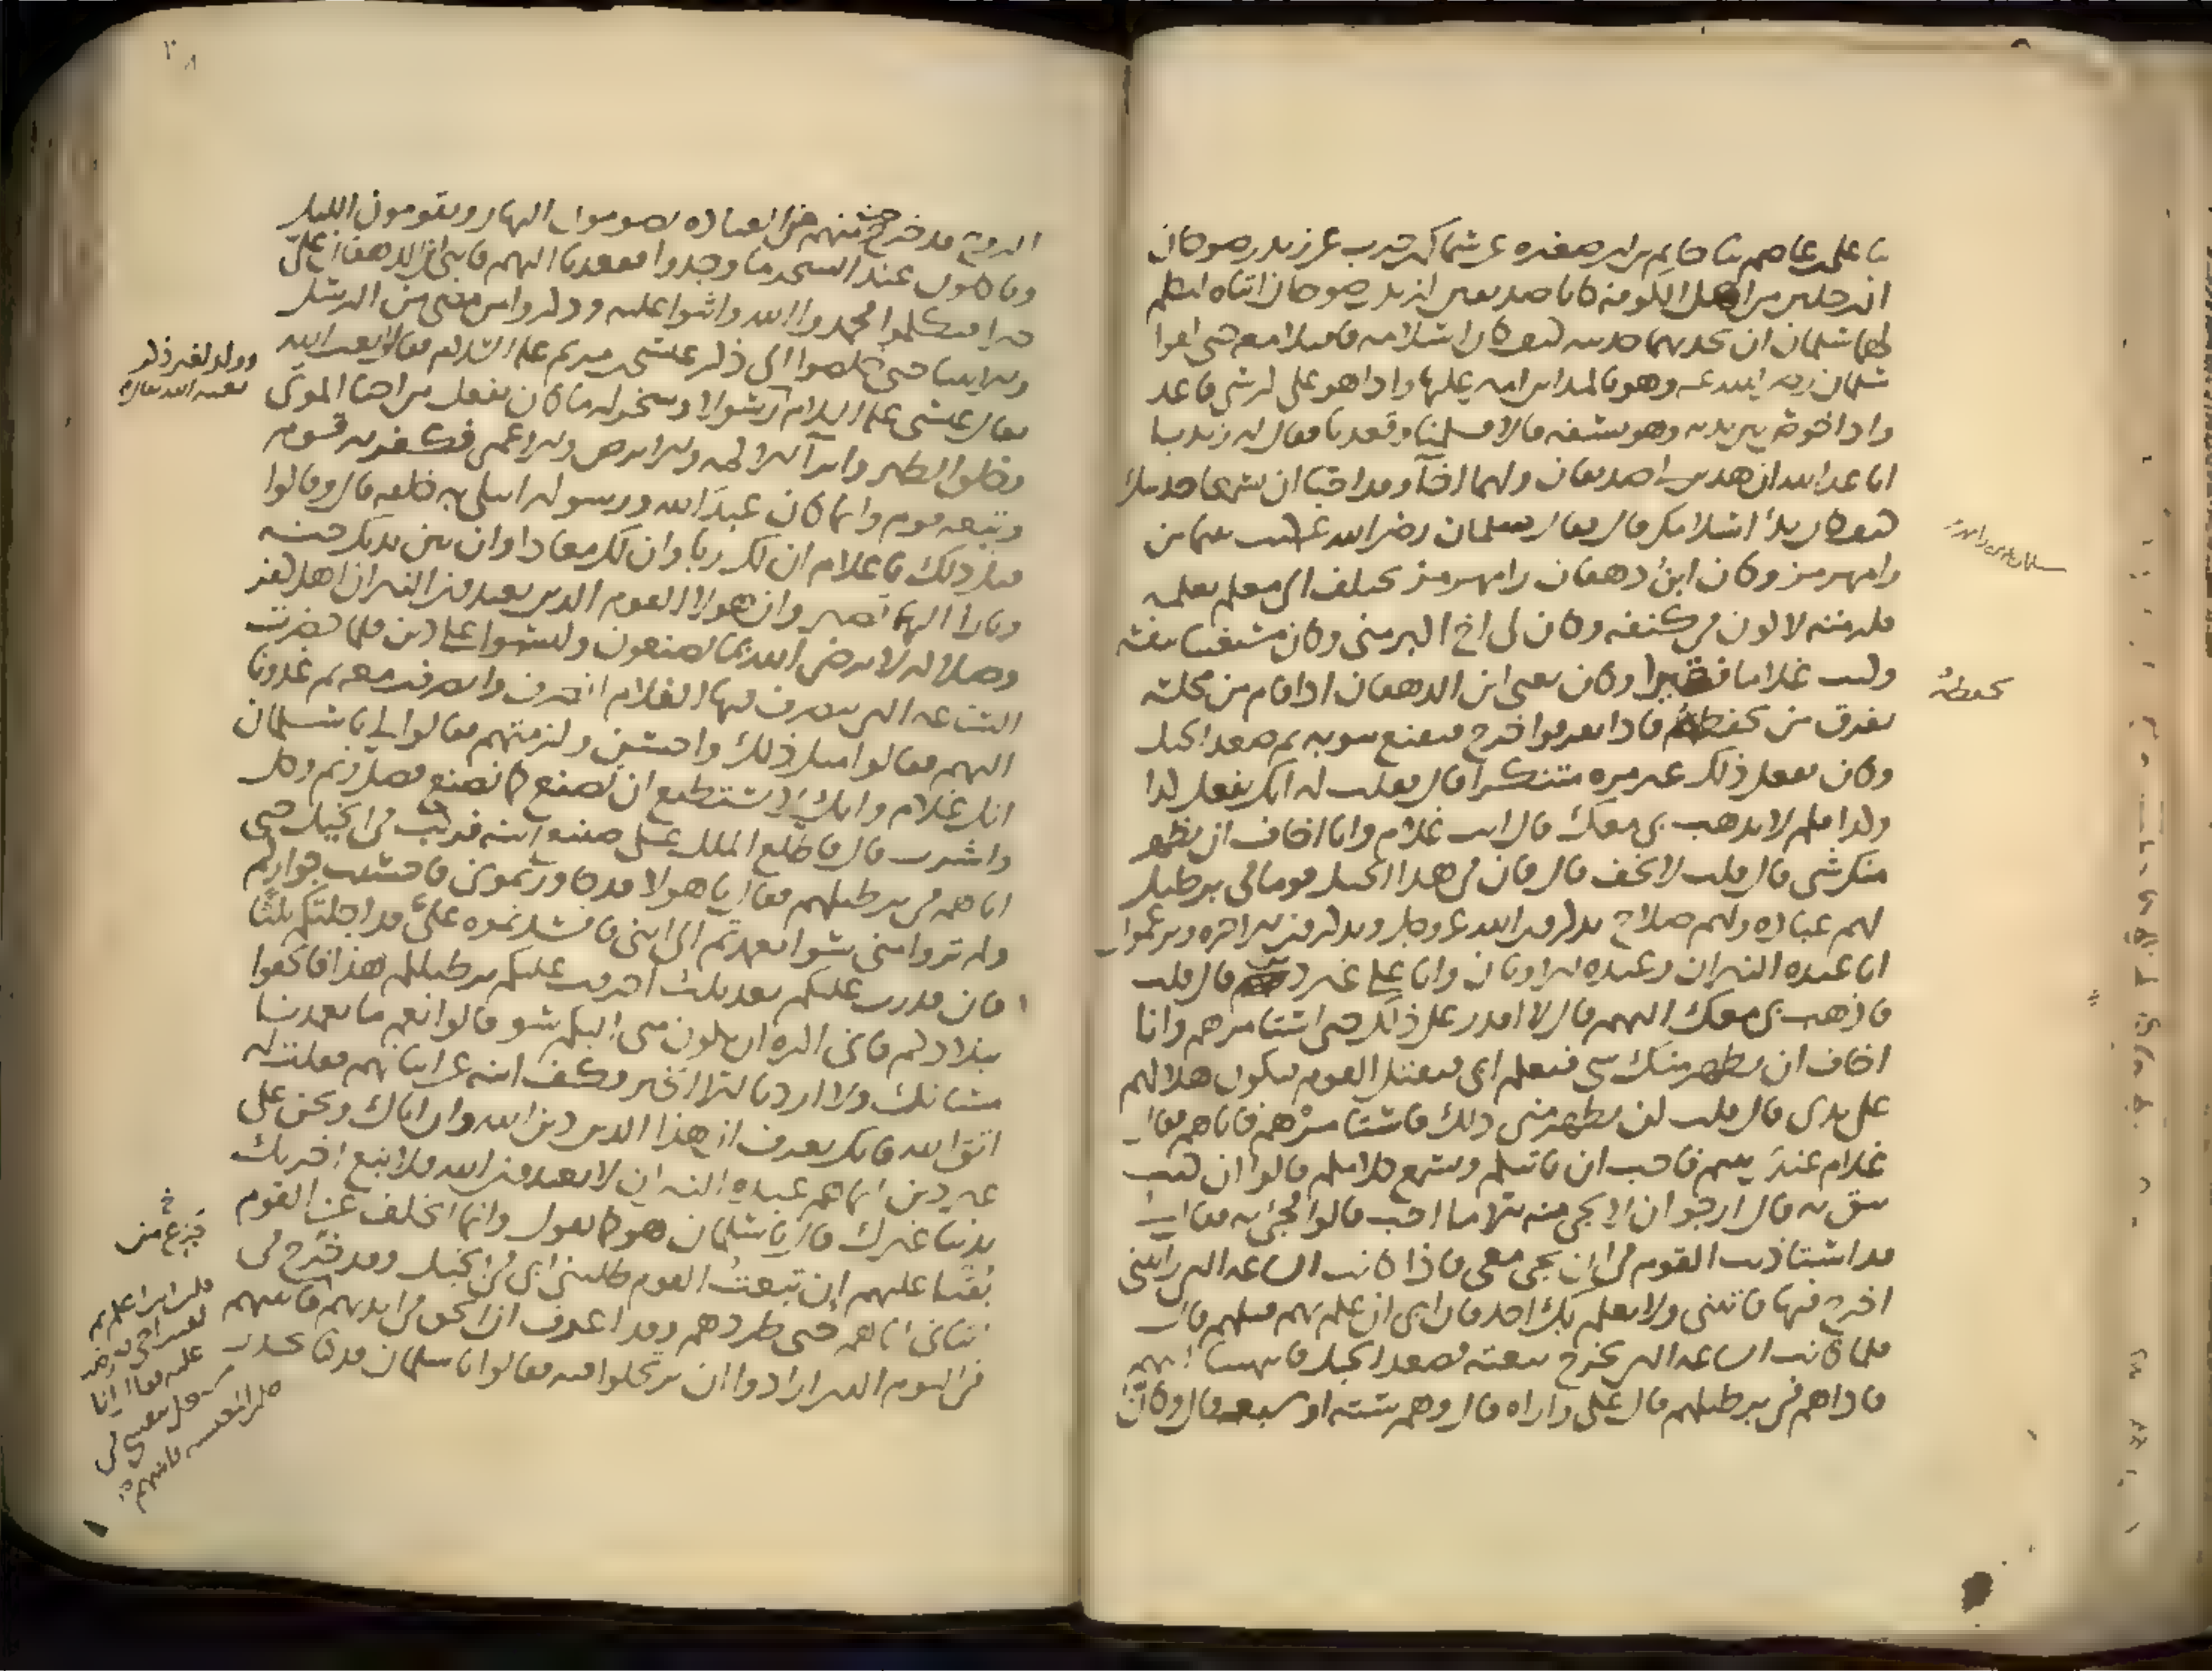 ثنا علي بن عاصم ثنا حاتم بن ابي صغيره عن سماك بن حرب عن زيد بن صوحان
ان رجلين من اهل الكوفة كانا صديقين لزيد بن صوحان اتياه ليكلم
لهما سلمان ان يحدثهما حديثه كيف كان اسلامه فاقبلا معه حتى لقوا
سلمان رضي الله عنه وهو بالمداين اميرا عليها واذا هو على كرسي قاعد
واذا خوص بين يديه وهو يسفه قالا فسلمنا وقعدنا فقال له زيد يا
ابا عبد الله ان هذين لي صديقان ولهما اخا وقد احبا ان يسمعا حديثك
كيف كان بدء اسلامك قال فقال سلمان رضي الله عنه كنت يتيما من
رامهرمز وكان ابن دهقان رامهرمز يختلف الى معلم يعلمه
فلزمته لاكون في كنفه وكان لي اخ اكبر مني وكان مستغنيا بنفسه
وكنت غلاما فقيرا وكان يعني ابن الدهقان اذا قام من مجلسه
تفرق من يحفظه فاذا تفرقوا خرج فيقنع بثوبه ثم صعد الجبل
وكان يفعل ذلك غير مره متنكرا قال فقلت له انك تفعل كذا
وكذا فلم لا تذهب بي معك قال انت غلام واخاف ان يظهر
منك شي قال قلت لا تخف قال فان في هذا الجبل قوما في برطيل
لهم عباده ولهم صلاح يذكرون الله عز وجل ويذكرون الاخره ويزعمون
انا عبده النيران وعبده الاوثان وانا على غير دين قال قلت
فاذهب بي معك اليهم قال لا اقدر على ذلك حتى استامرهم وانا
اخاف ان يظهر منك شي فيعلم ابي فيقتل القوم فيكون هلاكهم
على يدي قال قلت لن يظهر مني ذلك فاستامرهم فاتاهم فقال
غلام عندي يتيم فاحب ان ياتيكم ويسمع كلامكم قالوا ان كنت
تثق به قال ارجو ان لا يجي منه الا ما احب قالوا فجئ به فقال لي
قد استاذنت القوم في ان تجي معي فاذا كانت الساعه التي رايتني
اخرج فيها فاتني ولا يعلم بك احد فان ابي ان علم بهم قتلهم قال
فلما كانت الساعه التي يخرج تبعته فصعد الجبل فانتهينا اليهم
فاذا هم في برطيلهم قال علي واراه قال وهم سته او سبعه قال وكان
يحفظه
٢٨
الروح قد خرج منهم من العباده يصومون النهار ويقومون الليل
وياكلون عند السحر ما وجدوا فقعدنا اليهم فاثنى ابن الدهقان علي
خيرا فتكلموا فحمدوا الله واثنوا عليه وذكروا من مضى من الرسل
والانبيا حتى خلصوا الى ذكر عيسى بن مريم عليه السلام فقالوا بعث الله
تعالى عيسى عليه السلام رسولا وسخر له ما كان يفعل من احيا الموتى
وخلق الطير وابرا الاكمه والابرص والاعمى فكفر به قوم
وتبعه قوم وانما كان عبد الله ورسوله ابتلى به خلقه قال وقالوا
قبل ذلك يا غلام ان لك ربا وان لك معادا وان بين يديك جنه
ونارا اليها تصير وان هولا القوم الذين يعبدون النيران اهل كفر
وضلاله لا يرضى الله بما يصنعون وليسوا على دين فلما حضرت
الساعه التي ينصرف فيها الغلام انصرف وانصرفت معه ثم غدونا
اليهم فقالوا مثل ذلك واحسن ولزمتهم فقالوا لي يا سلمان
انك غلام وانك لا تستطيع ان تصنع كما نصنع فصل ونم وكل
واشرب قال فاطلع الملك على صنيع ابنه فركب في الخيل حتى
اتاهم في برطيلهم فقال يا هولا قد جاورتموني فاحسنت جواركم
ولم تروا مني سوا فعمدتم الى ابني فافسدتموه علي قد اجلتكم ثلثا
فان قدرت عليكم بعد ثلث احرقت عليكم برطيلكم هذا فالحقوا
ببلادكم فاني اكره ان يكون مني اليكم سو قالوا نعم ما تعمدنا
مساتك ولا اردنا الا الخير فكف ابنه عن اتيانهم فقلت له
اتق الله فانك تعرف ان هذا الدين دين الله وان اباك ونحن على
غير دين انما هم عبده النيران لا يعبدون الله فلا تبع اخرتك
بدنيا غيرك قال يا سلمان هو كما تقول وانما اتخلف عن القوم
بقيا عليهم ان تبعت القوم طلبني ابي في الخيل وقد خرج في
اتياني اياهم حتى طردهم وقد اعرف ان الحق في ايديهم فاتيتهم
في اليوم الذي ارادوا ان يرتحلوا فيه فقالوا يا سلمان قد كنا نحذر
فجزع من